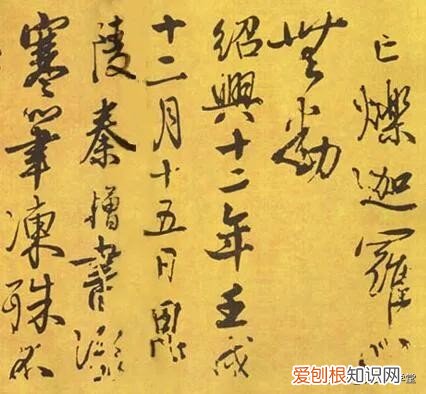 亡爍迦羅心
無動
紹興十二年壬戌
十二月十五日毘
陵秦檜書
寒筆凍殊不
爱创根知识网